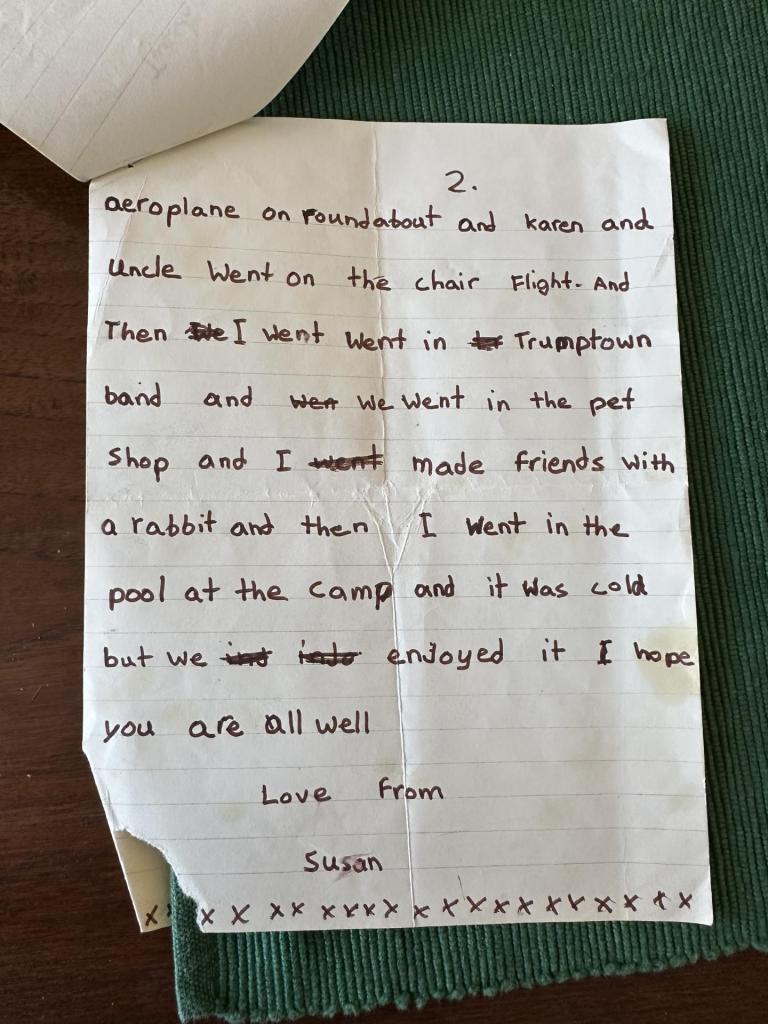 2.
aeroplane on roundabout and karen and
Uncle Went on the chair Flight. And
Then I went Went in Trumptown
band and we went in the pet
Shop and I made friends with
a rabbit and then I went in the
pool at the camp and it was cold
but we enjoyed it I hope
you are all well
Love from
Susan
x x x x x x x x x x x x x x x x x x x x